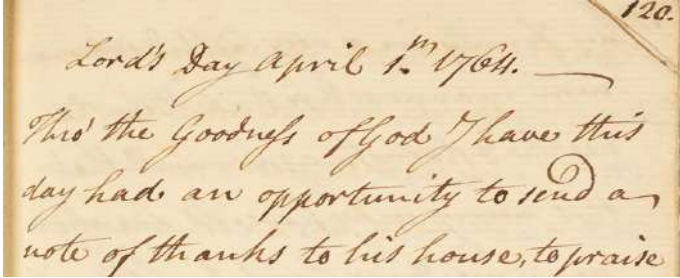 120.
Lord's Day April 1.m 1764. —
Thro' the Goodneſs of God I have this
day had an opportunity to send a
note of thanks to his house, to praise